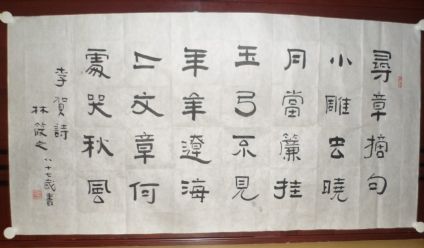 尋章摘句
小雕虫曉
月當簾挂
玉弓不見
年年遼海
上文章何
處哭秋風
李賀詩
林 八十七歲書